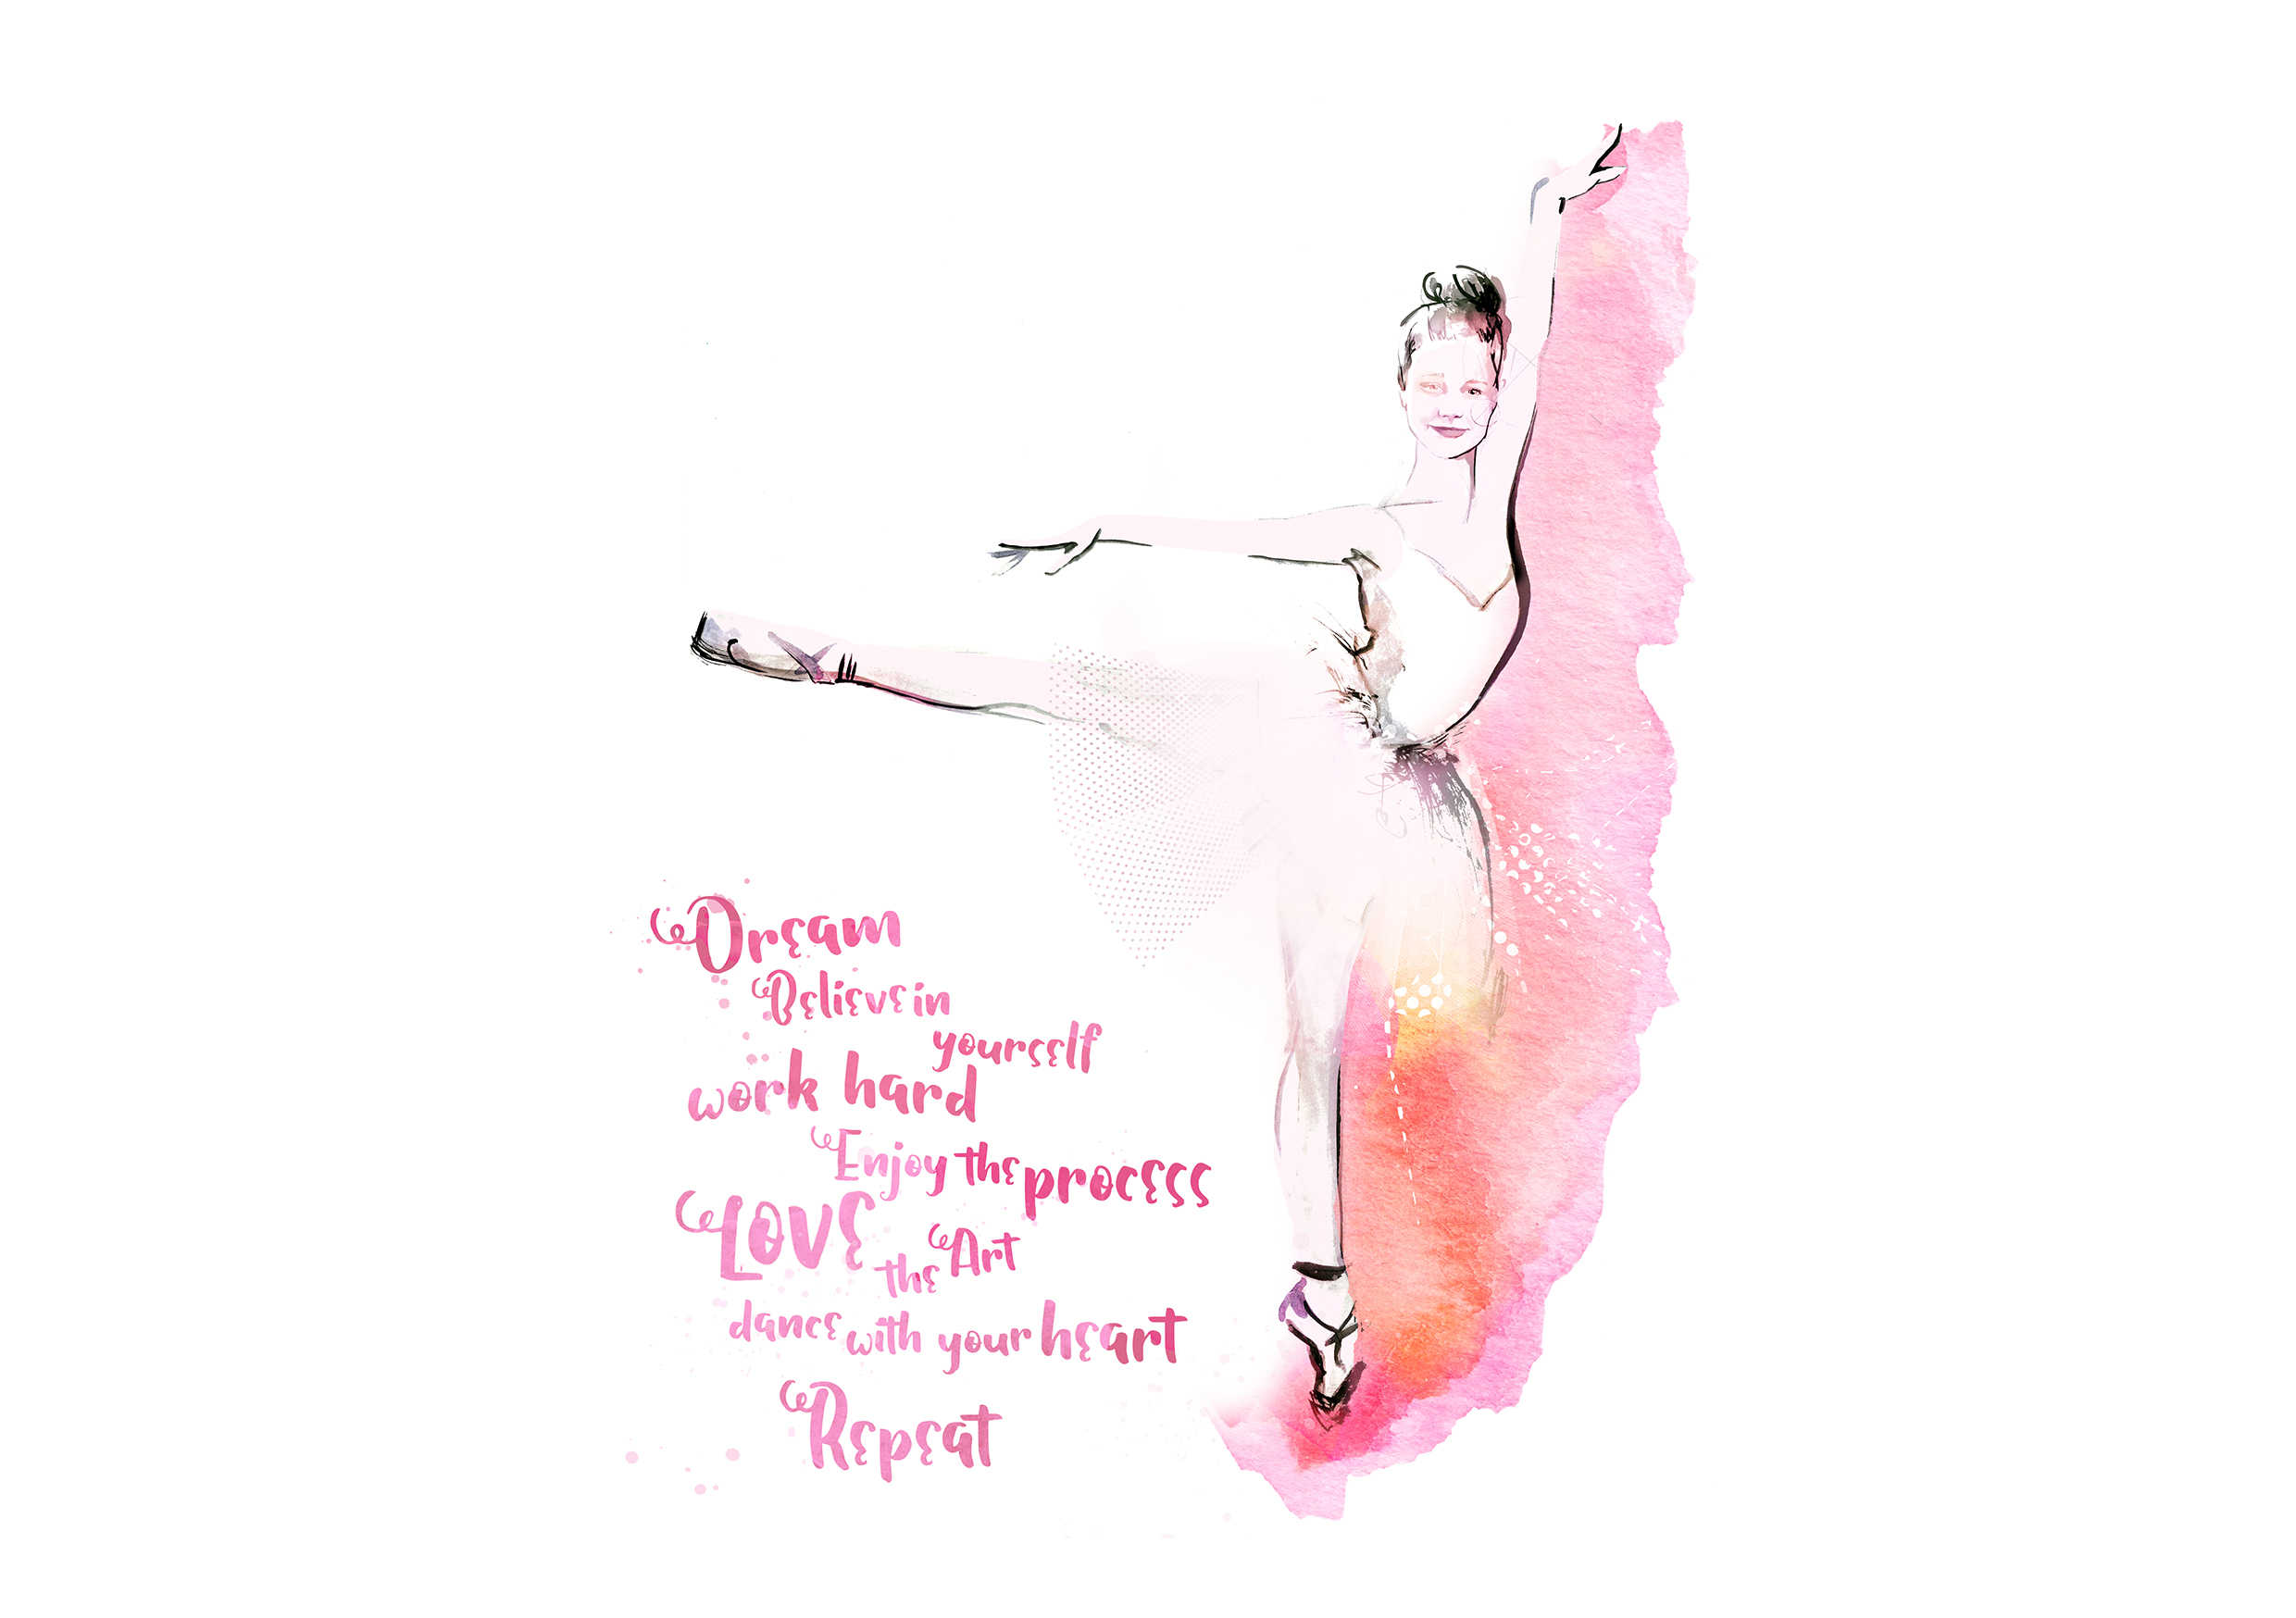 Dream
Believe in
yourself
work hard
Enjoy the process
Love
the Art
dance with your heart
Repeat